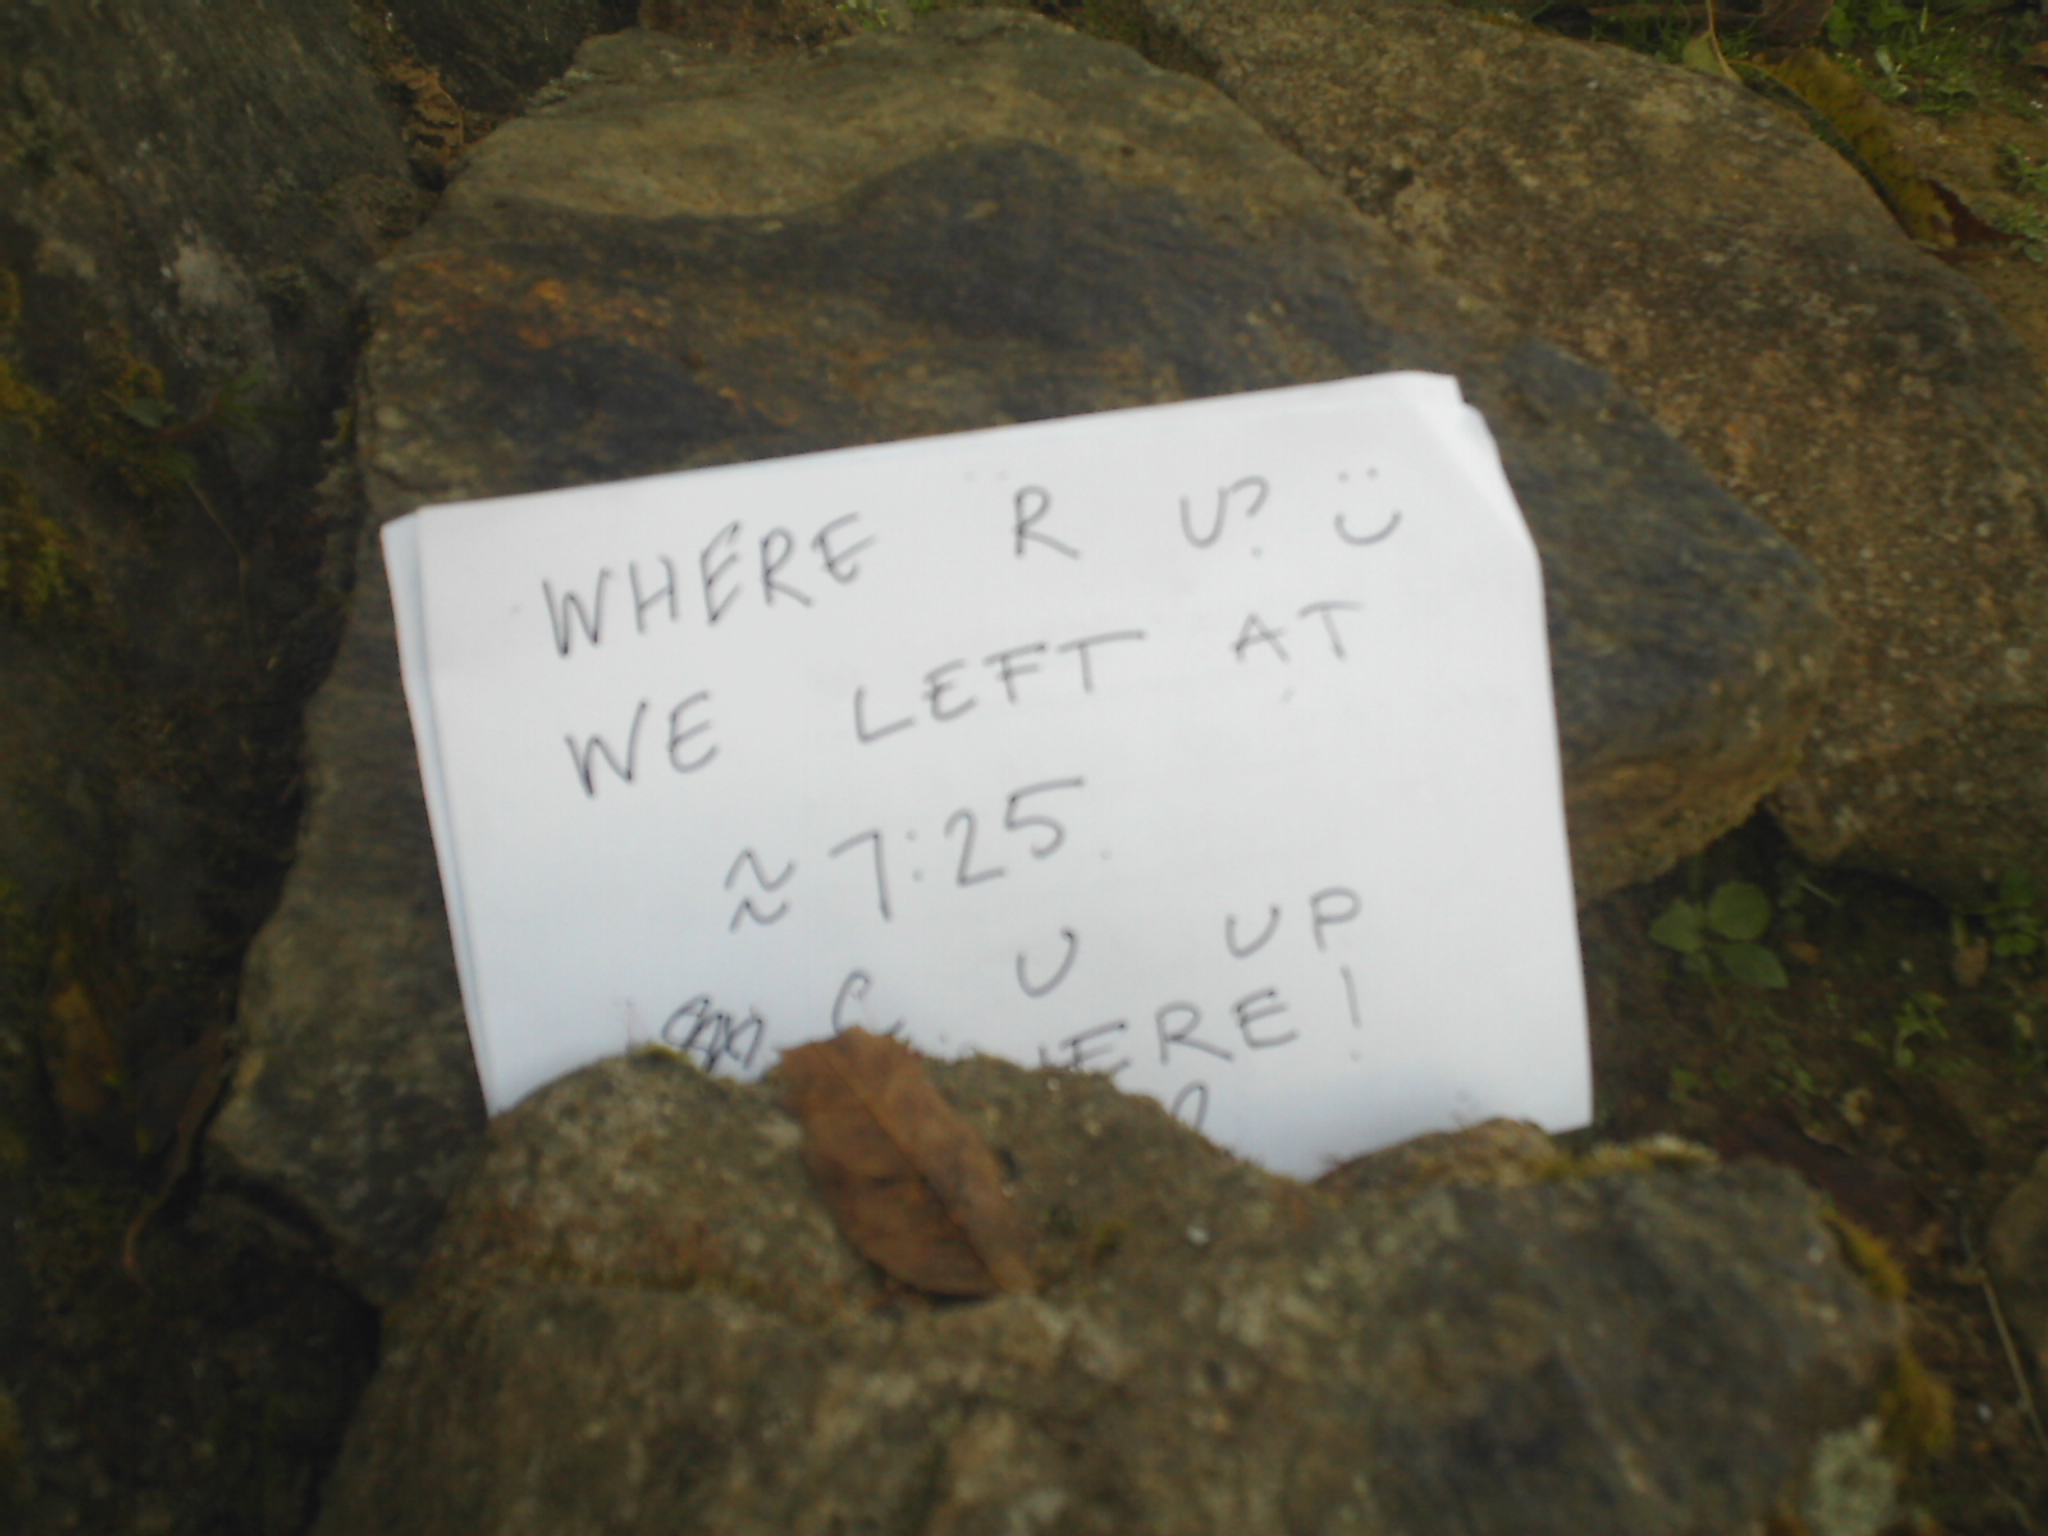 WHERE R U? :)
WE LEFT AT
≈ 7:25
C U UP